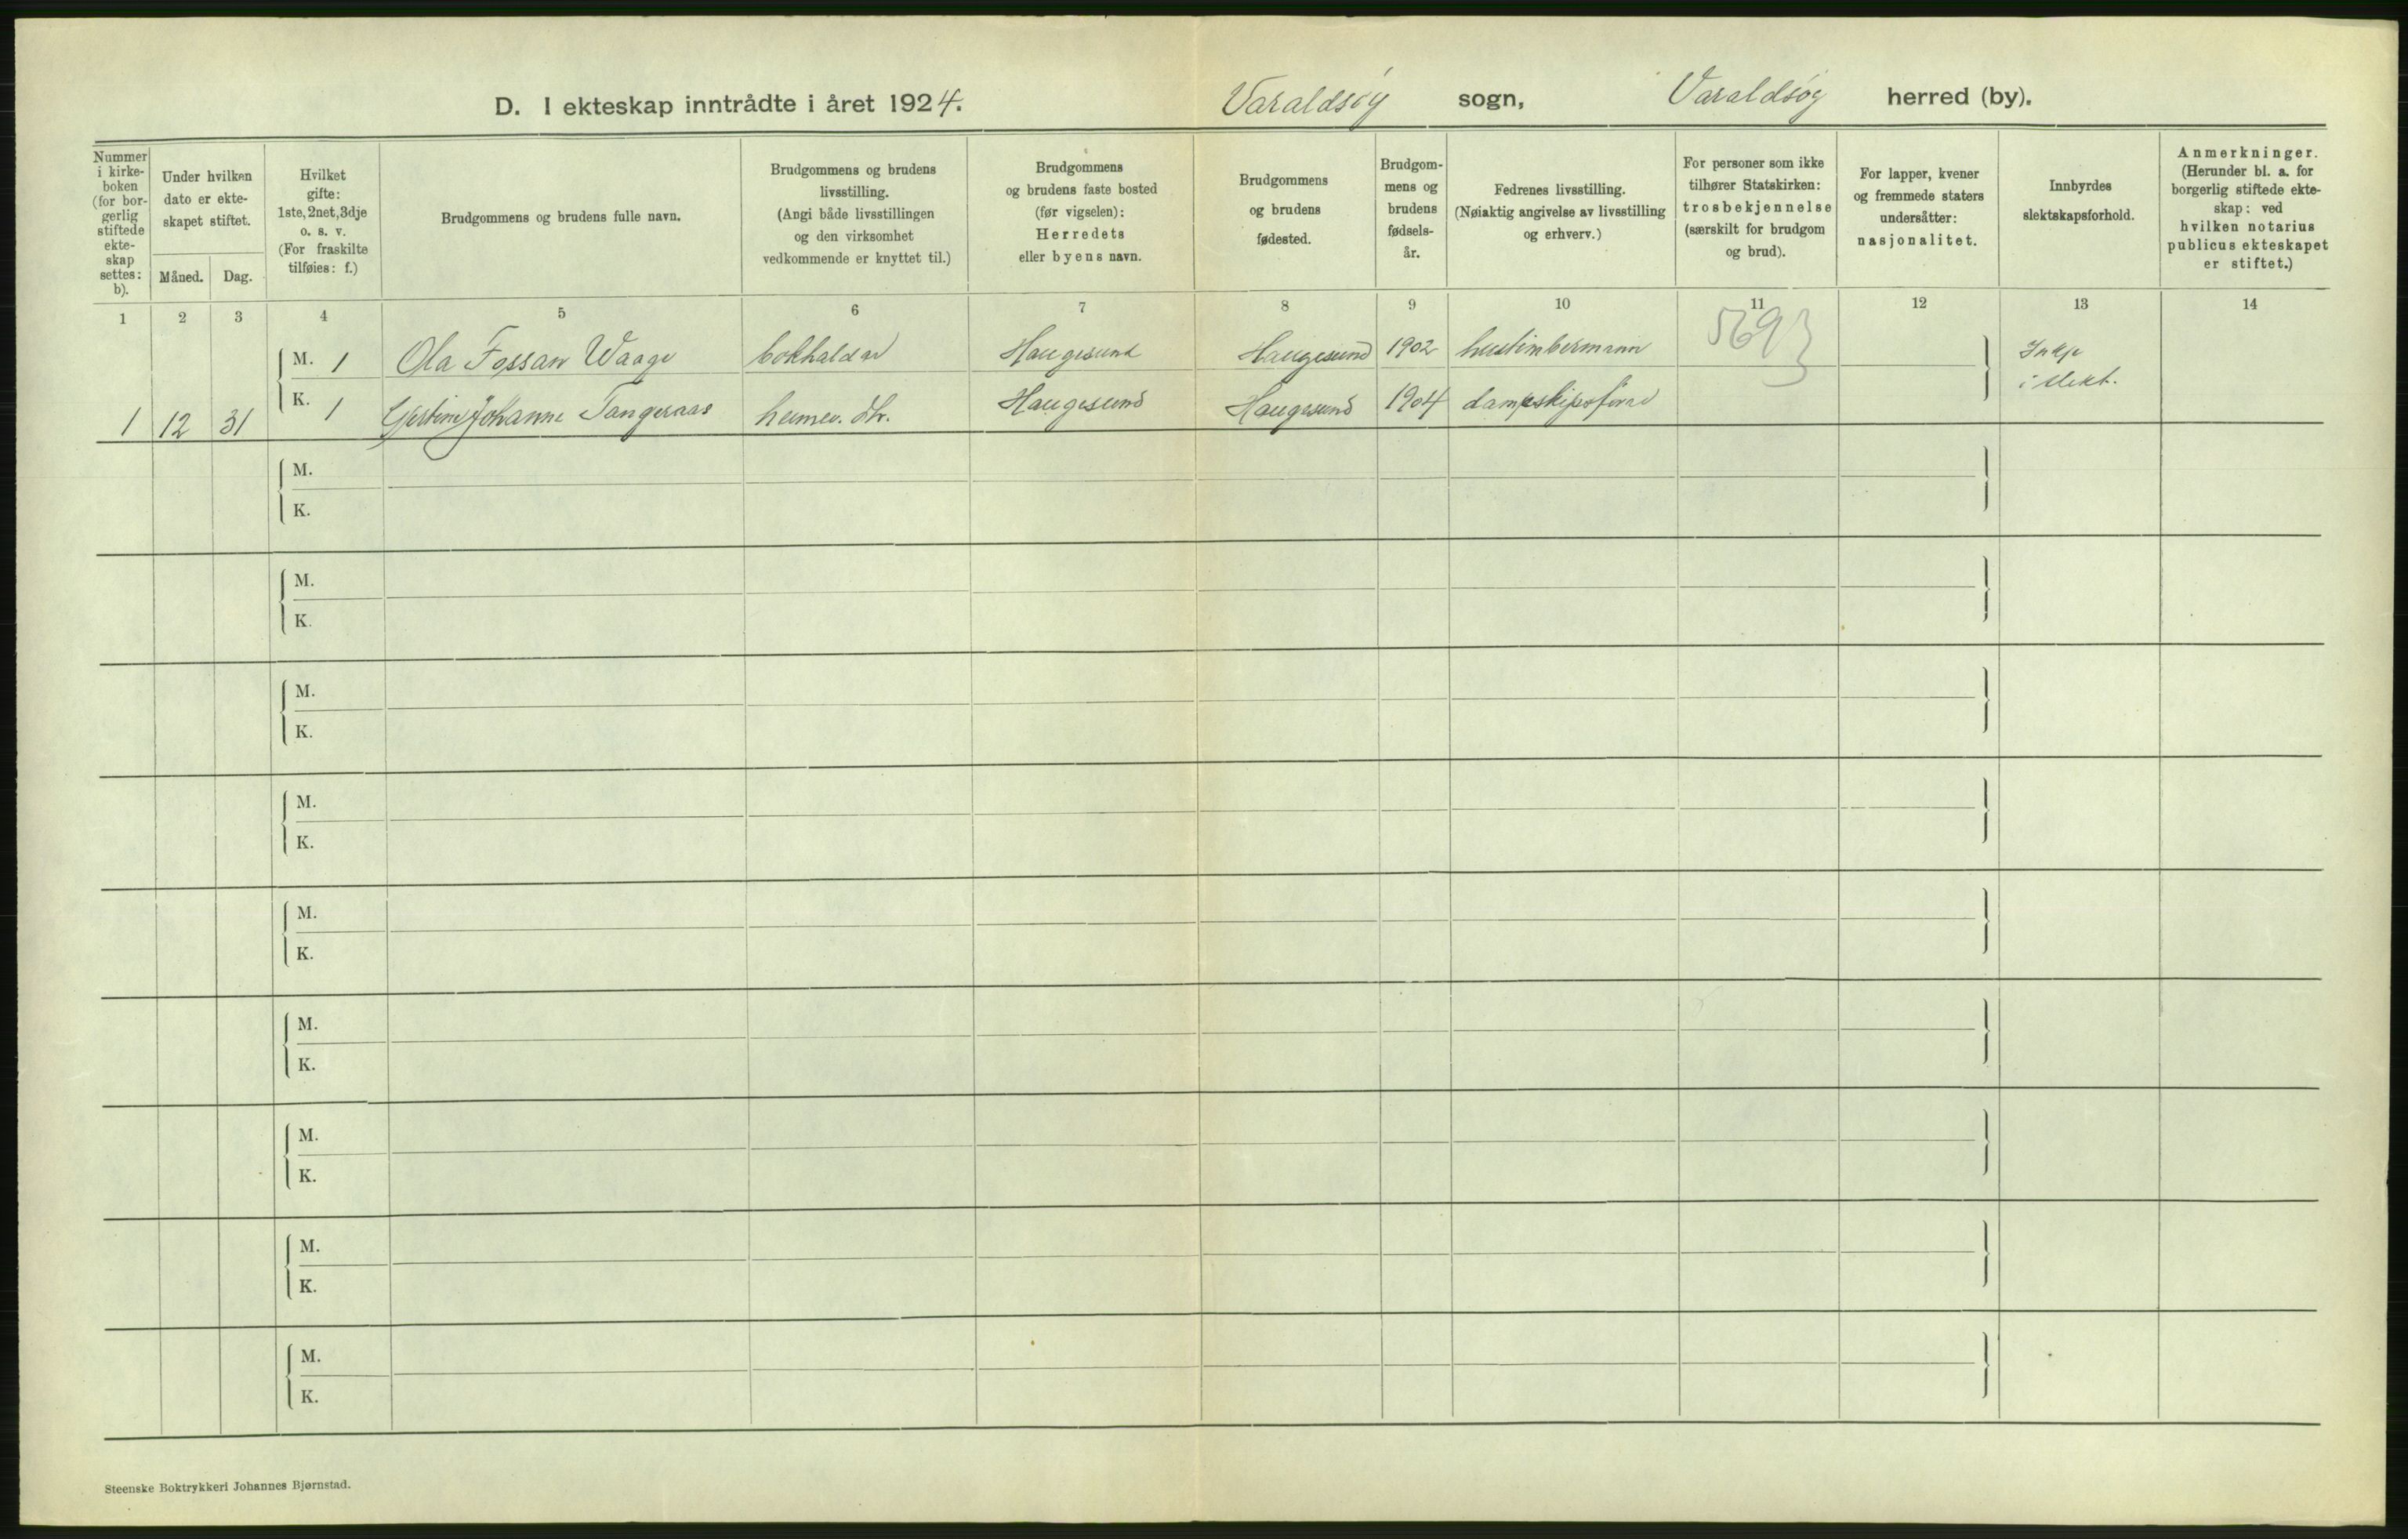 D. I ekteskap inntrådte i året 1924. Varaldsøy sogn, Varaldsøy herred (by).
Nummer
i kirke-
boken
(for bor-
gerlig
stiftede
ekte-
skap
settes:
b).
Under hvilken
dato er ekte-
skapet stiftet.
Måned. Dag.
Hvilket
gifte:
1ste, 2net, 3dje
o. s. v.
(For fraskilte
tilføies: f.)
Brudgommens og brudens fulle navn.
Brudgommens og brudens
livsstilling.
(Angi både livsstillingen
og den virksomhet
vedkommende er knyttet til.)
Brudgommens
og brudens faste bosted
(før vigselen):
Herredets
eller byens navn.
Brudgommens
og brudens
fødested.
Brudgom-
mens og
brudens
fødsels-
år.
Fedrenes livsstilling.
(Nøiaktig angivelse av livsstilling
og erhverv.)
For personer som ikke
tilhører Statskirken:
trosbekjennelse
(særskilt for brudgom
og brud).
For lapper, kvener
og fremmede staters
undersåtter:
nasjonalitet.
Innbyrdes
slektskapsforhold.
Anmerkninger.
(Herunder bl. a. for
borgerlig stiftede ekte-
skap: ved
hvilken notarius
publicus ekteskapet
er stiftet.)
1 2 3 4 5 6 7 8 9 10 11 12 13 14
M. 1 Ola Fossan Waage bokhaldar Haugesund Haugesund 1902 hustimbermann 5693 Inkje
i slekt.
1 12 31 K. 1 Gjertine Johanne Tangeraas heimev. dtr. Haugesund Haugesund 1904 dampskipsförar
M.
K.
M.
K.
M.
K.
M.
K.
M.
K.
M.
K.
M.
K.
M.
K.
M.
K.
Steenske Boktrykkeri Johannes Bjørnstad.